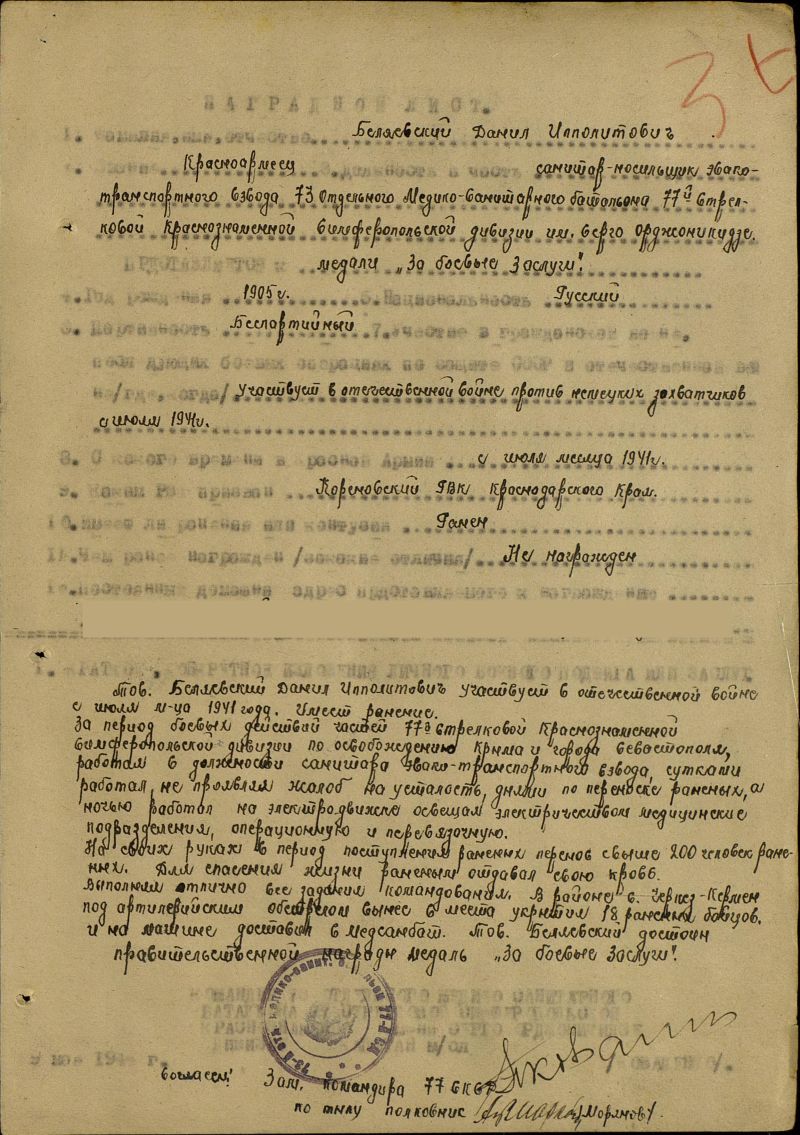 НАГРАДНОЙ ЛИСТ.
1. Фамилия, имя, отчество Беляевский Данил Ипполитович
Красноармеец санитар-носильщик эвако-
транспортного взвода 73 Отдельного Медико-Санитарного батальона 77й Стрел-
ковой Краснознаменной Симферопольской дивизии им. Серго Орджоникидзе.
медали „За боевые Заслуги".
4. Год рождения 1905 г. 5. Национальность Русский
6. Партийность Беспартийный 7. Участие в гражданской войне,
Участвует в отечественной войне против немецких захватчиков
с июля 1941 г.
8. С какого времени в Красной Армии с июля месяца 1941 г.
9. Каким РВК призван Кореновский РВК Краснодарского Края.
10. Имеет ли ранения или контузии Ранен
11. Чем ранее награжден /за какие отличия/ Не награжден
12. Постоянный домашний адрес
Тов. Беляевский Данил Ипполитович участвует в отечественной войне
с июля м-ца 1941 года. Имеет ранение.
За период боевых действий частей 77й Стрелковой Краснознаменной
Симферопольской дивизии по освобождению Крыма и города Севастополя,
работая в должности санитара эвако-транспортного взвода, сутками
работал, не проявляя жалоб на усталость, днями по переноске раненых, а
ночью работал на электродвижке освещая электричеством медицинские
подразделения, операционную и перевязочную.
На своих руках в период поступления раненых перенов свыше 200 человек ране-
ных. Для спасения жизни раненым отдавал свою кровь.
Выполнял отлично все задания командования. В районе с. Черкез-Кермен
под артилерийским обстрелом вынес с места укрытия 18 раненых бойцов,
и на машине доставил в медсанбат. Тов. Беляевский достоин
правительственной награды медаль „За боевые Заслуги".
Согласен: Зам. Командира 77 СКСД
по тылу полковник /Морянов/